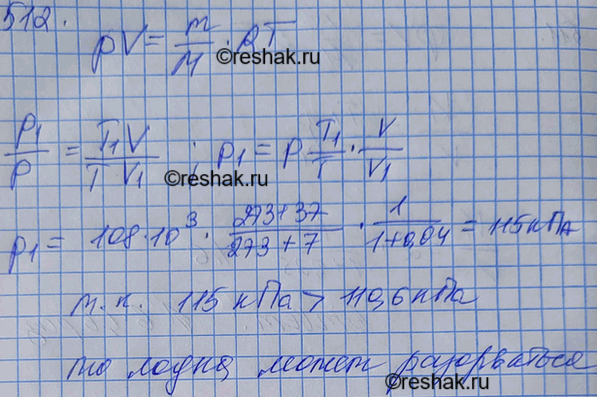 512.
pV = m/M · RT
©reshak.ru
p₁/p = T₁V/T V₁ ; p₁ = p T₁/T · V/V₁
©reshak.ru
p₁ = 108·10³ · 273+37/273+7 · 1/1+0,04 = 115 кПа
©reshak.ru
т.к. 115 кПа > 110,6 кПа
то лодка может разорваться
©reshak.ru